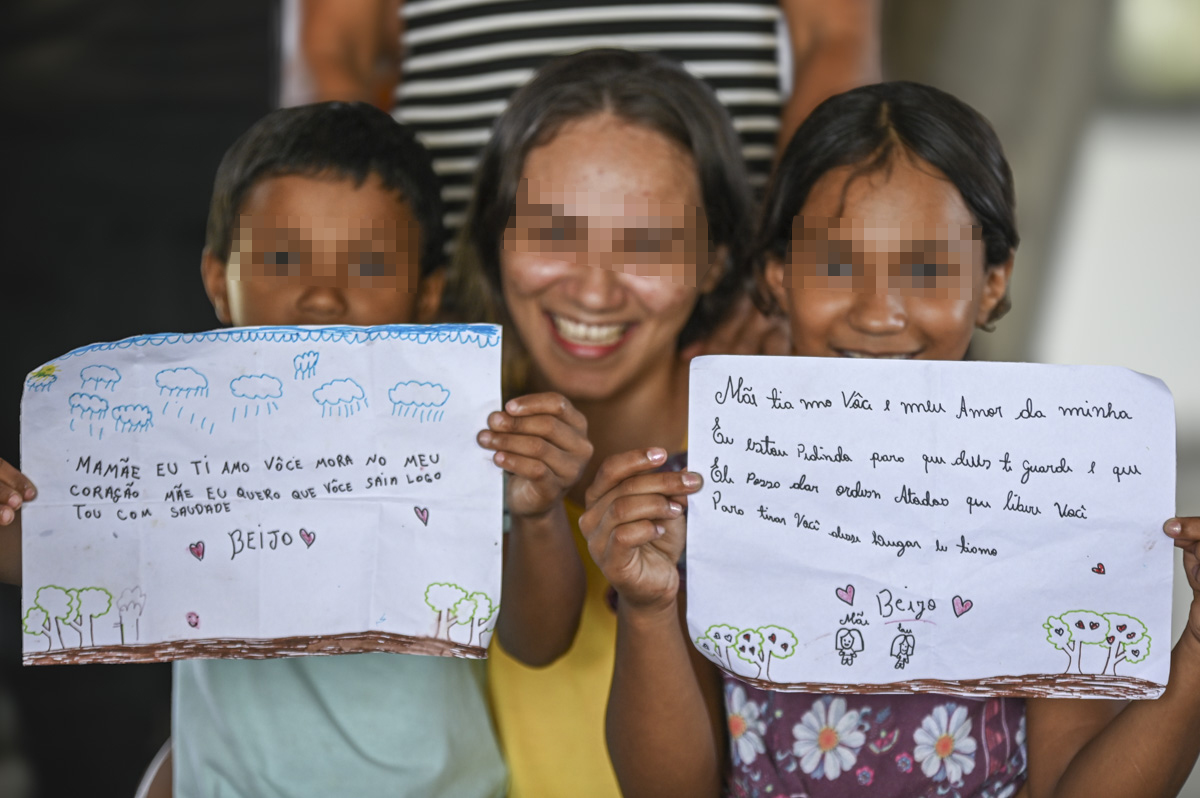 MAMÃE EU TI AMO VÔCE MORA NO MEU
CORAÇÃO MÃE EU QUERO QUE VÔCE SAIA LOGO
TOU COM SAUDADE
BEIJO
Mãe tia mo Vôci e meu Amor da minha
Eu estou Pidindo para que deus ti guarde e que
Ele possa dar ordem Atodas que libere Você
Para tirar Você desse lugar te tiamo
Beijo
Mãe